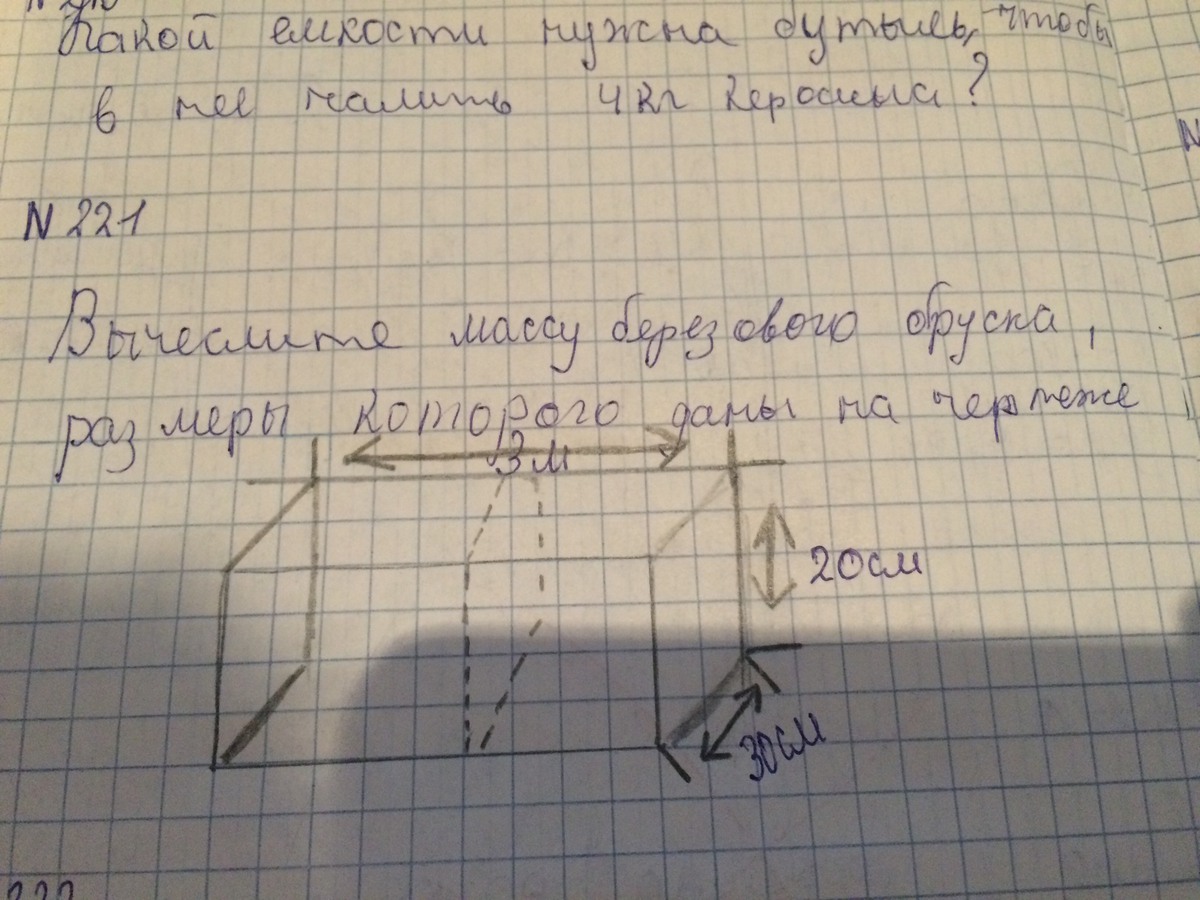 Какой емкости нужна бутыль, чтобы
в нее налить 4кг керосина?
N 221
Вычеслите массу березового бруска,
размеры которого даны на чертеже
3м
20см
30см